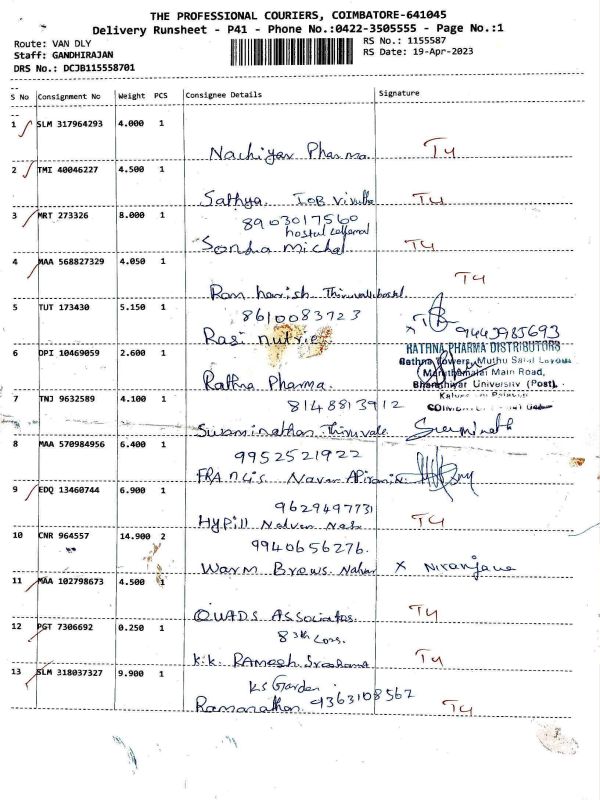 THE PROFESSIONAL COURIERS, COIMBATORE-641045
Delivery Runsheet - P41 - Phone No.:0422-3505555 - Page No.:1
Route: VAN DLY
RS No.: 1155587
Staff: GANDHIRAJAN
RS Date: 19-Apr-2023
DRS No.: DCJB115558701
S No Consignment No Weight PCS Consignee Details Signature
1 SLM 317964293 4.000 1
Nachiyar Pharma T4
2 TMI 40046227 4.500 1
Sathya IOB T4
3 MRT 273326 8.000 1
8903017560
hostal
Sondra Michal T4
4 MAA 568827329 4.050 1
T4
Ram harish
5 TUT 173430 5.150 1
8610083723
x 9442985693
Rasi nutrie
RATHNA PHARMA DISTRIBUTORS
6 DPI 10469059 2.600 1
Rathna Towers, Muthu
Main Road,
Rathna Pharma.
Bharathiyar University (Post),
7 TNJ 9632589 4.100 1
8148813912
Swaminathan
8 MAA 570984956 6.400 1
9952521922
FRANCIS Navan
9 EDQ 13460744 6.900 1
9629497731
Hypill T4
10 CNR 964557 14.900 2
9940656276.
Warm Brews x Niranjana
11 MAA 102798673 4.500 1
QUADS Associates T4
12 PGT 7306692 0.250 1
8th Cors.
K.K. RAMESH T4
13 SLM 318037327 9.900 1
KS Garden
Ramanathan 9363108562 T4